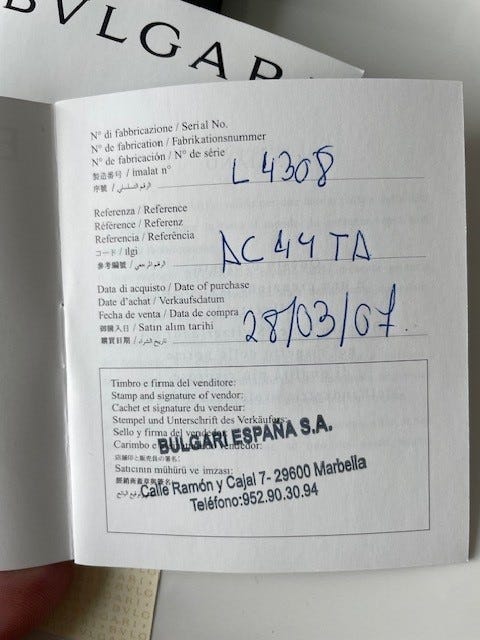 BVLGARI
Nº di fabbricazione / Serial No.
Nº de fabrication / Fabrikationsnummer
Nº de fabricación / Nº de série
製造番号 / imalat nº
序號 / الرقم التسلسلي
L 4308
Referenza / Reference
Référence / Referenz
Referencia / Referência
コード / ilgi
參考編號 / الرقم المرجعي
AC 44 TA
Data di acquisto / Date of purchase
Date d'achat / Verkaufsdatum
Fecha de venta / Data de compra
御購入日 / Satın alım tarihi
購買日期 / تاريخ الشراء
28/03/07.
Timbro e firma del venditore:
Stamp and signature of vendor:
Cachet et signature du vendeur:
Stempel und Unterschrift des Verkäufers:
Sello y firma del vendedor:
Carimbo e Vendedor:
BULGARI ESPAÑA S.A.
店舗印と販売員の署名:
Satıcının mühürü ve imzası:
Calle Ramón y Cajal 7- 29600 Marbella
Teléfono:952.90.30.94
BVLGARI